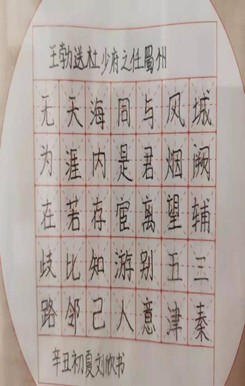 王勃送杜少府之任蜀州
城阙辅三秦
风烟望五津
与君离别意
同是宦游人
海内存知己
天涯若比邻
无为在歧路
辛丑初夏刘欣书